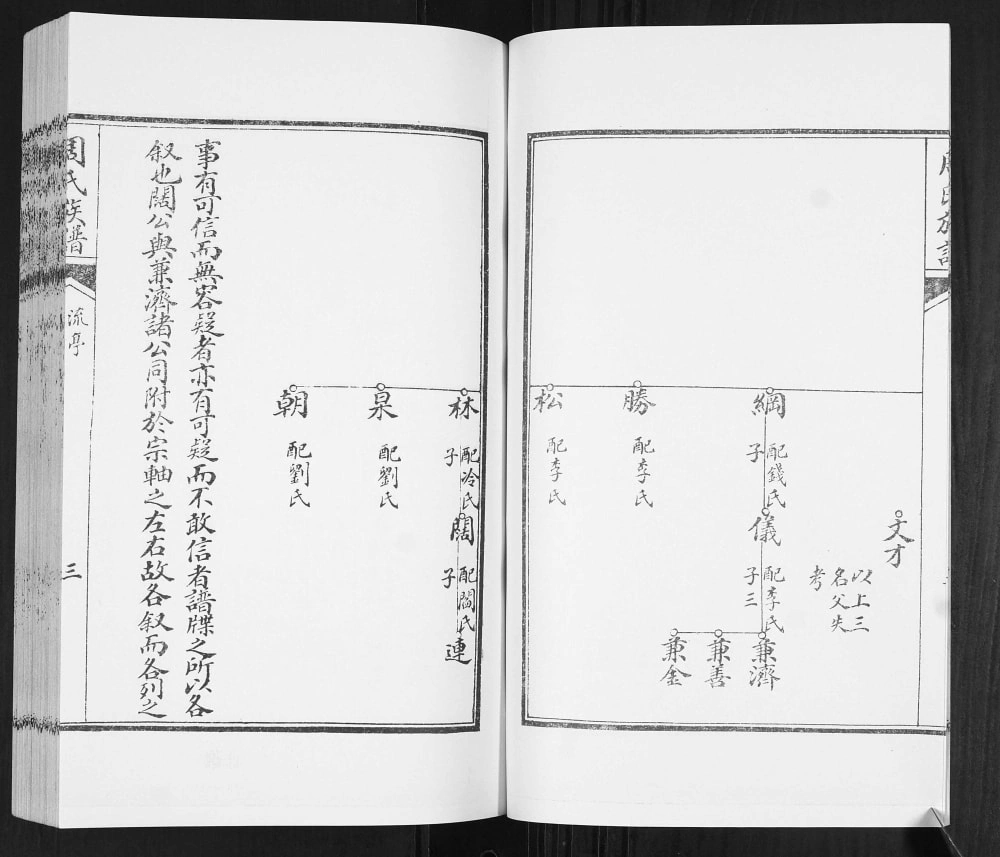 周氏族譜
文才
以上三
名父失
考
綱
配錢氏
子
儀
配李氏
子三
兼濟
兼善
兼金
勝
配李氏
松
配李氏
林
配冷氏
子
闊
配閻氏
子
連
泉
配劉氏
朝
配劉氏
事有可信而無容疑者亦有可疑而不敢信者譜牒之所以各
叙也闊公與兼濟諸公同附於宗軸之左右故各叙而各列之
周氏族譜
流亭
三